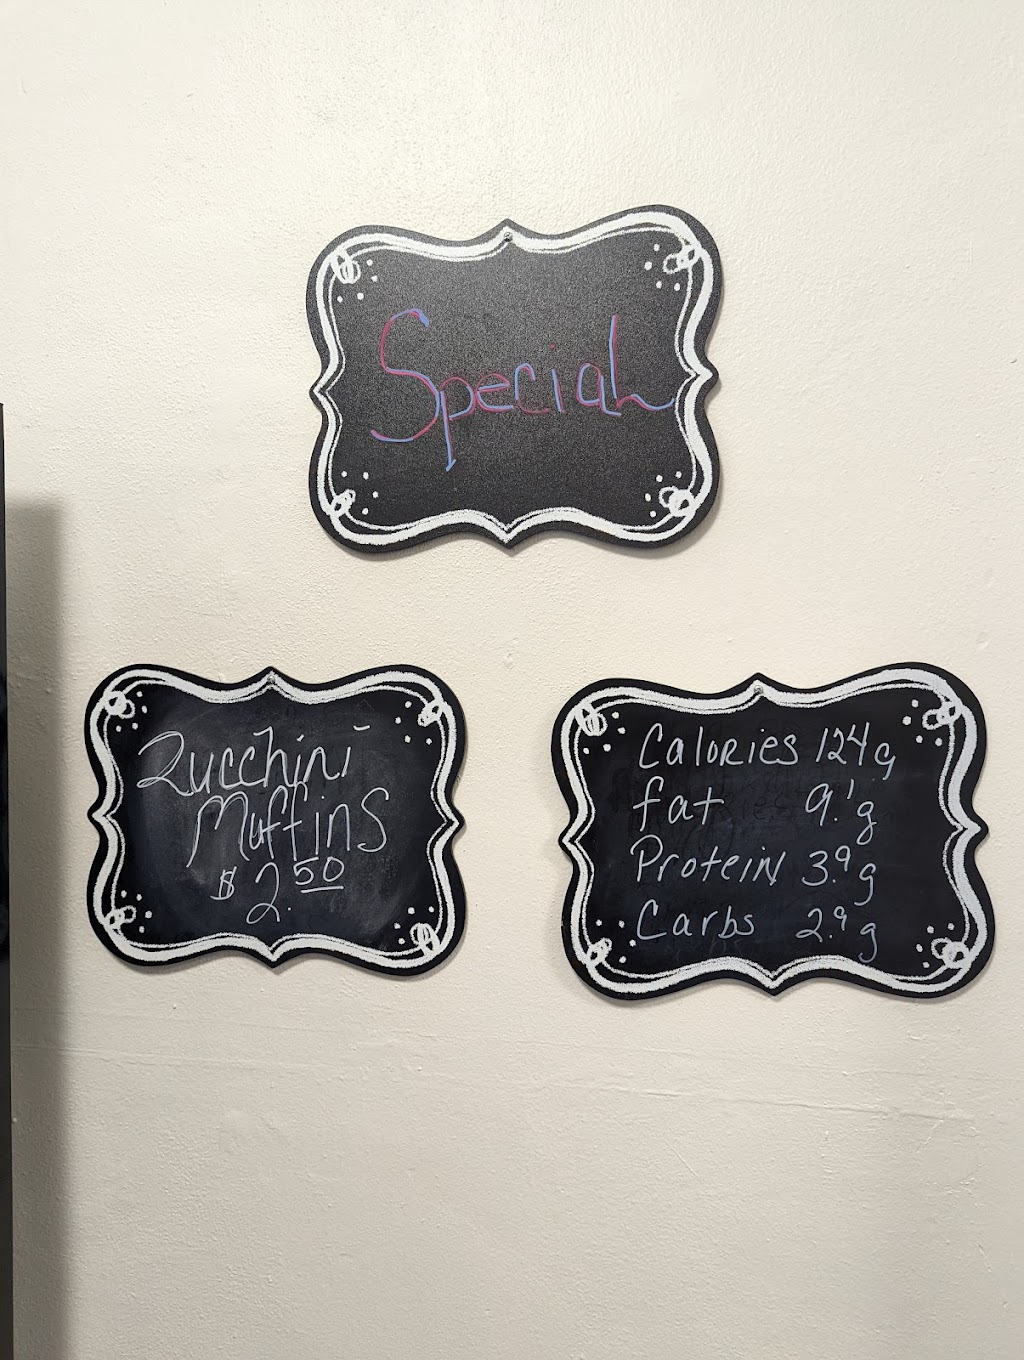 Special
Zucchini
Muffins
$2.50
Calories 124g
fat 9.1g
Protein 3.9g
Carbs 2.9g